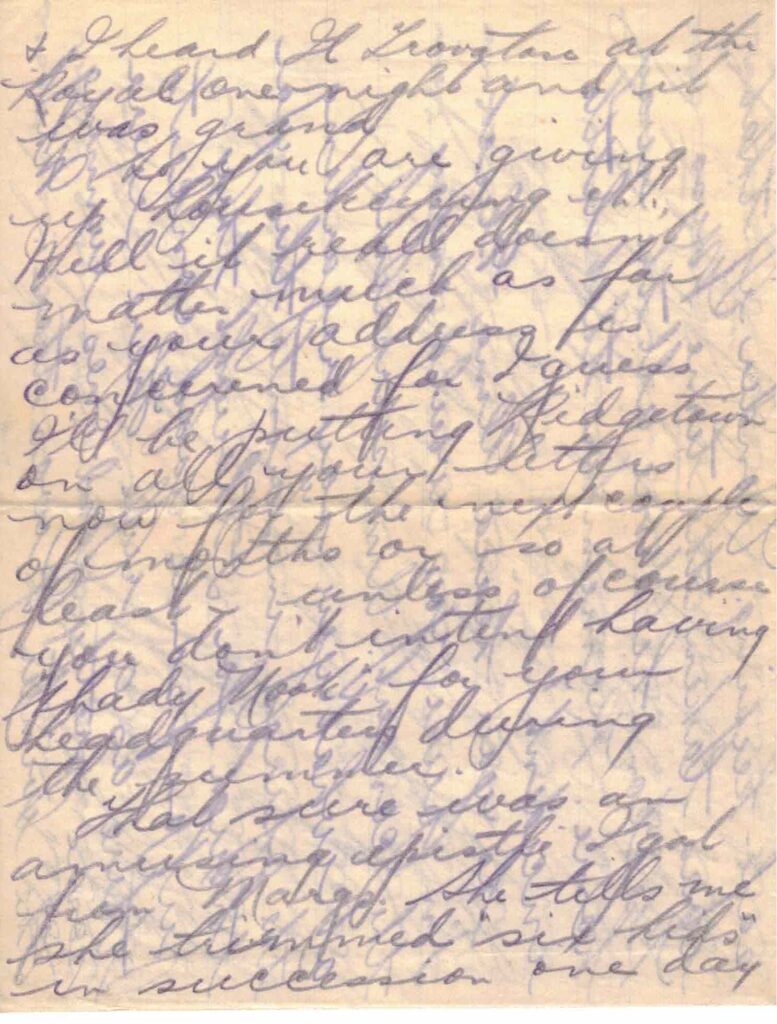 & I heard Il Trovatore at the
Royal one night and it
was grand
So you are giving
up housekeeping eh!
Well it really doesnt
matter much as far
as your address is
concerned for I guess
I'll be putting Ridgetown
on all your letters
now for the next couple
of months or so at
least - unless of course
you don't intend having
"Shady Nook" for your
headquarters during
the summer.
That sure was an
amusing epistle I got
from Margo. She tells me
she trimmed "six kids"
in succession one day